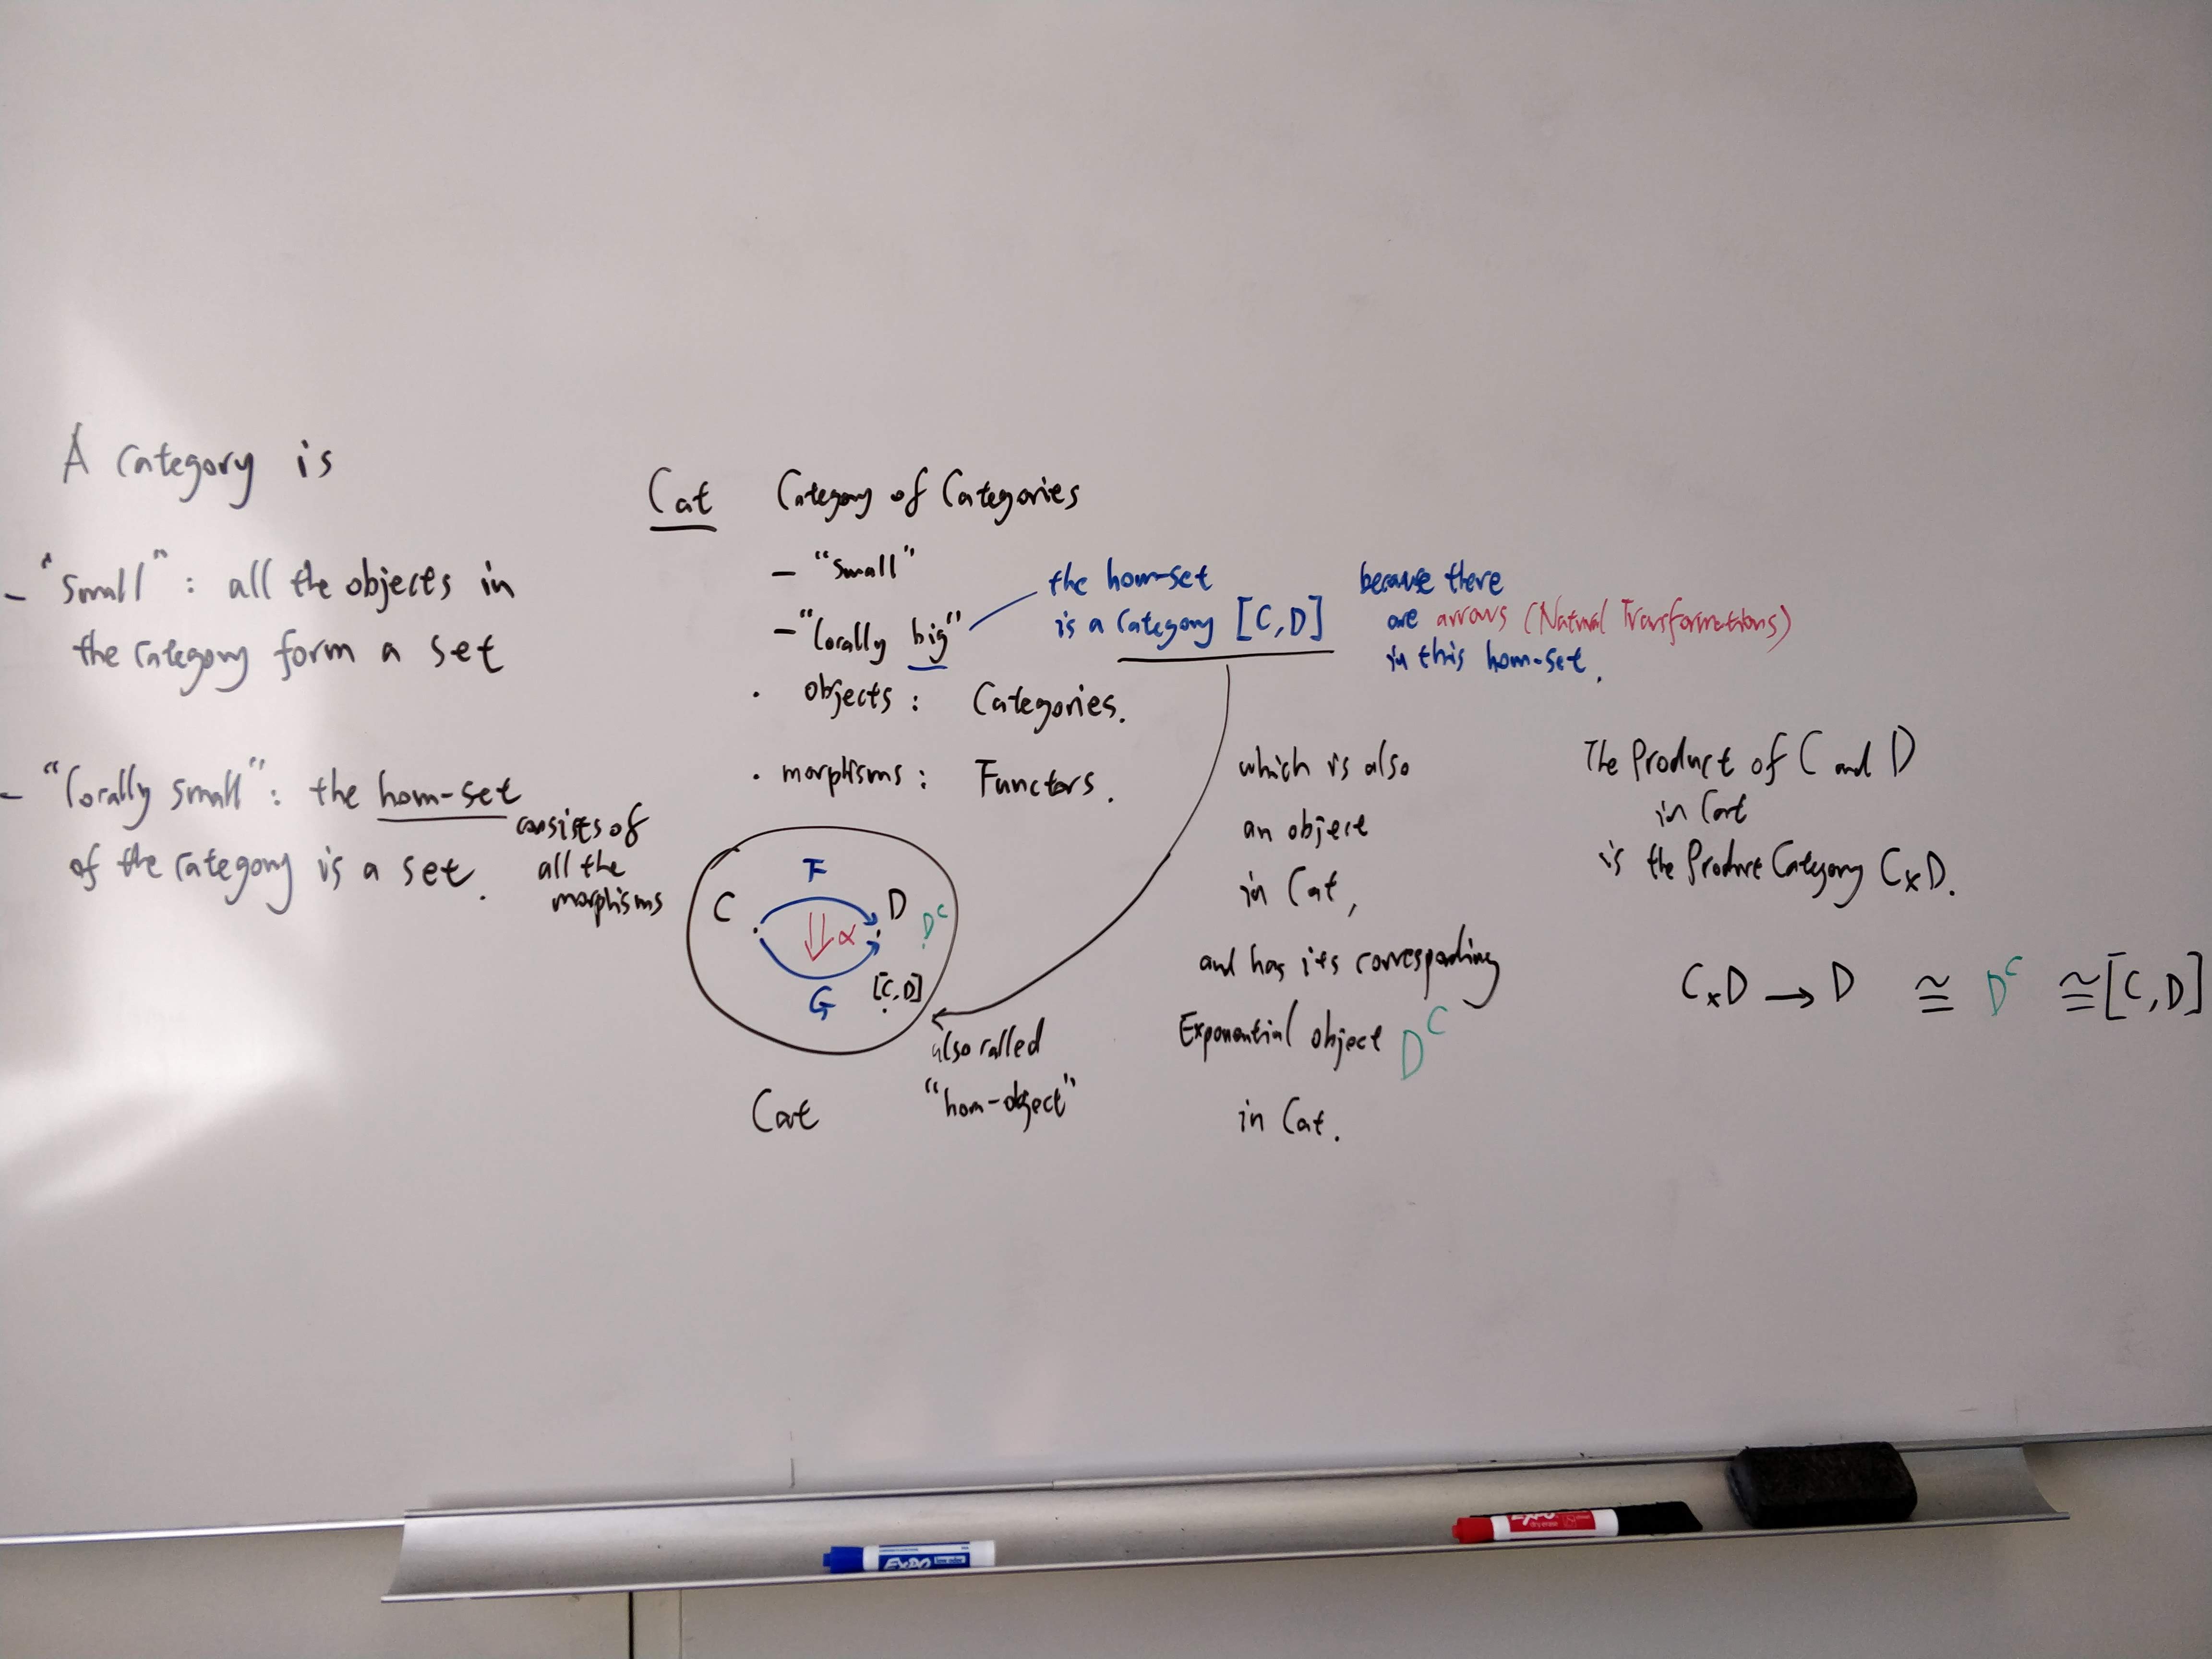 A Category is
- "Small" : all the objects in
the Category form a set
- "locally small" : the hom-set
of the Category is a set.
consists of
all the
morphisms
Cat Category of Categories
- "Small"
- "locally big"
the hom-set
is a Category [C,D]
because there
are arrows (Natural Transformations)
in this hom-set.
. objects : Categories.
. morphisms : Functors.
F
C D D^C
⇓ α
G [C,D]
Cat
also called
"hom-object"
which is also
an object
in Cat,
and has its corresponding
Exponential object D^C
in Cat.
The Product of C and D
in Cat
is the Product Category C×D.
C×D → D ≅ D^C ≅ [C,D]
EXPO
EXPO